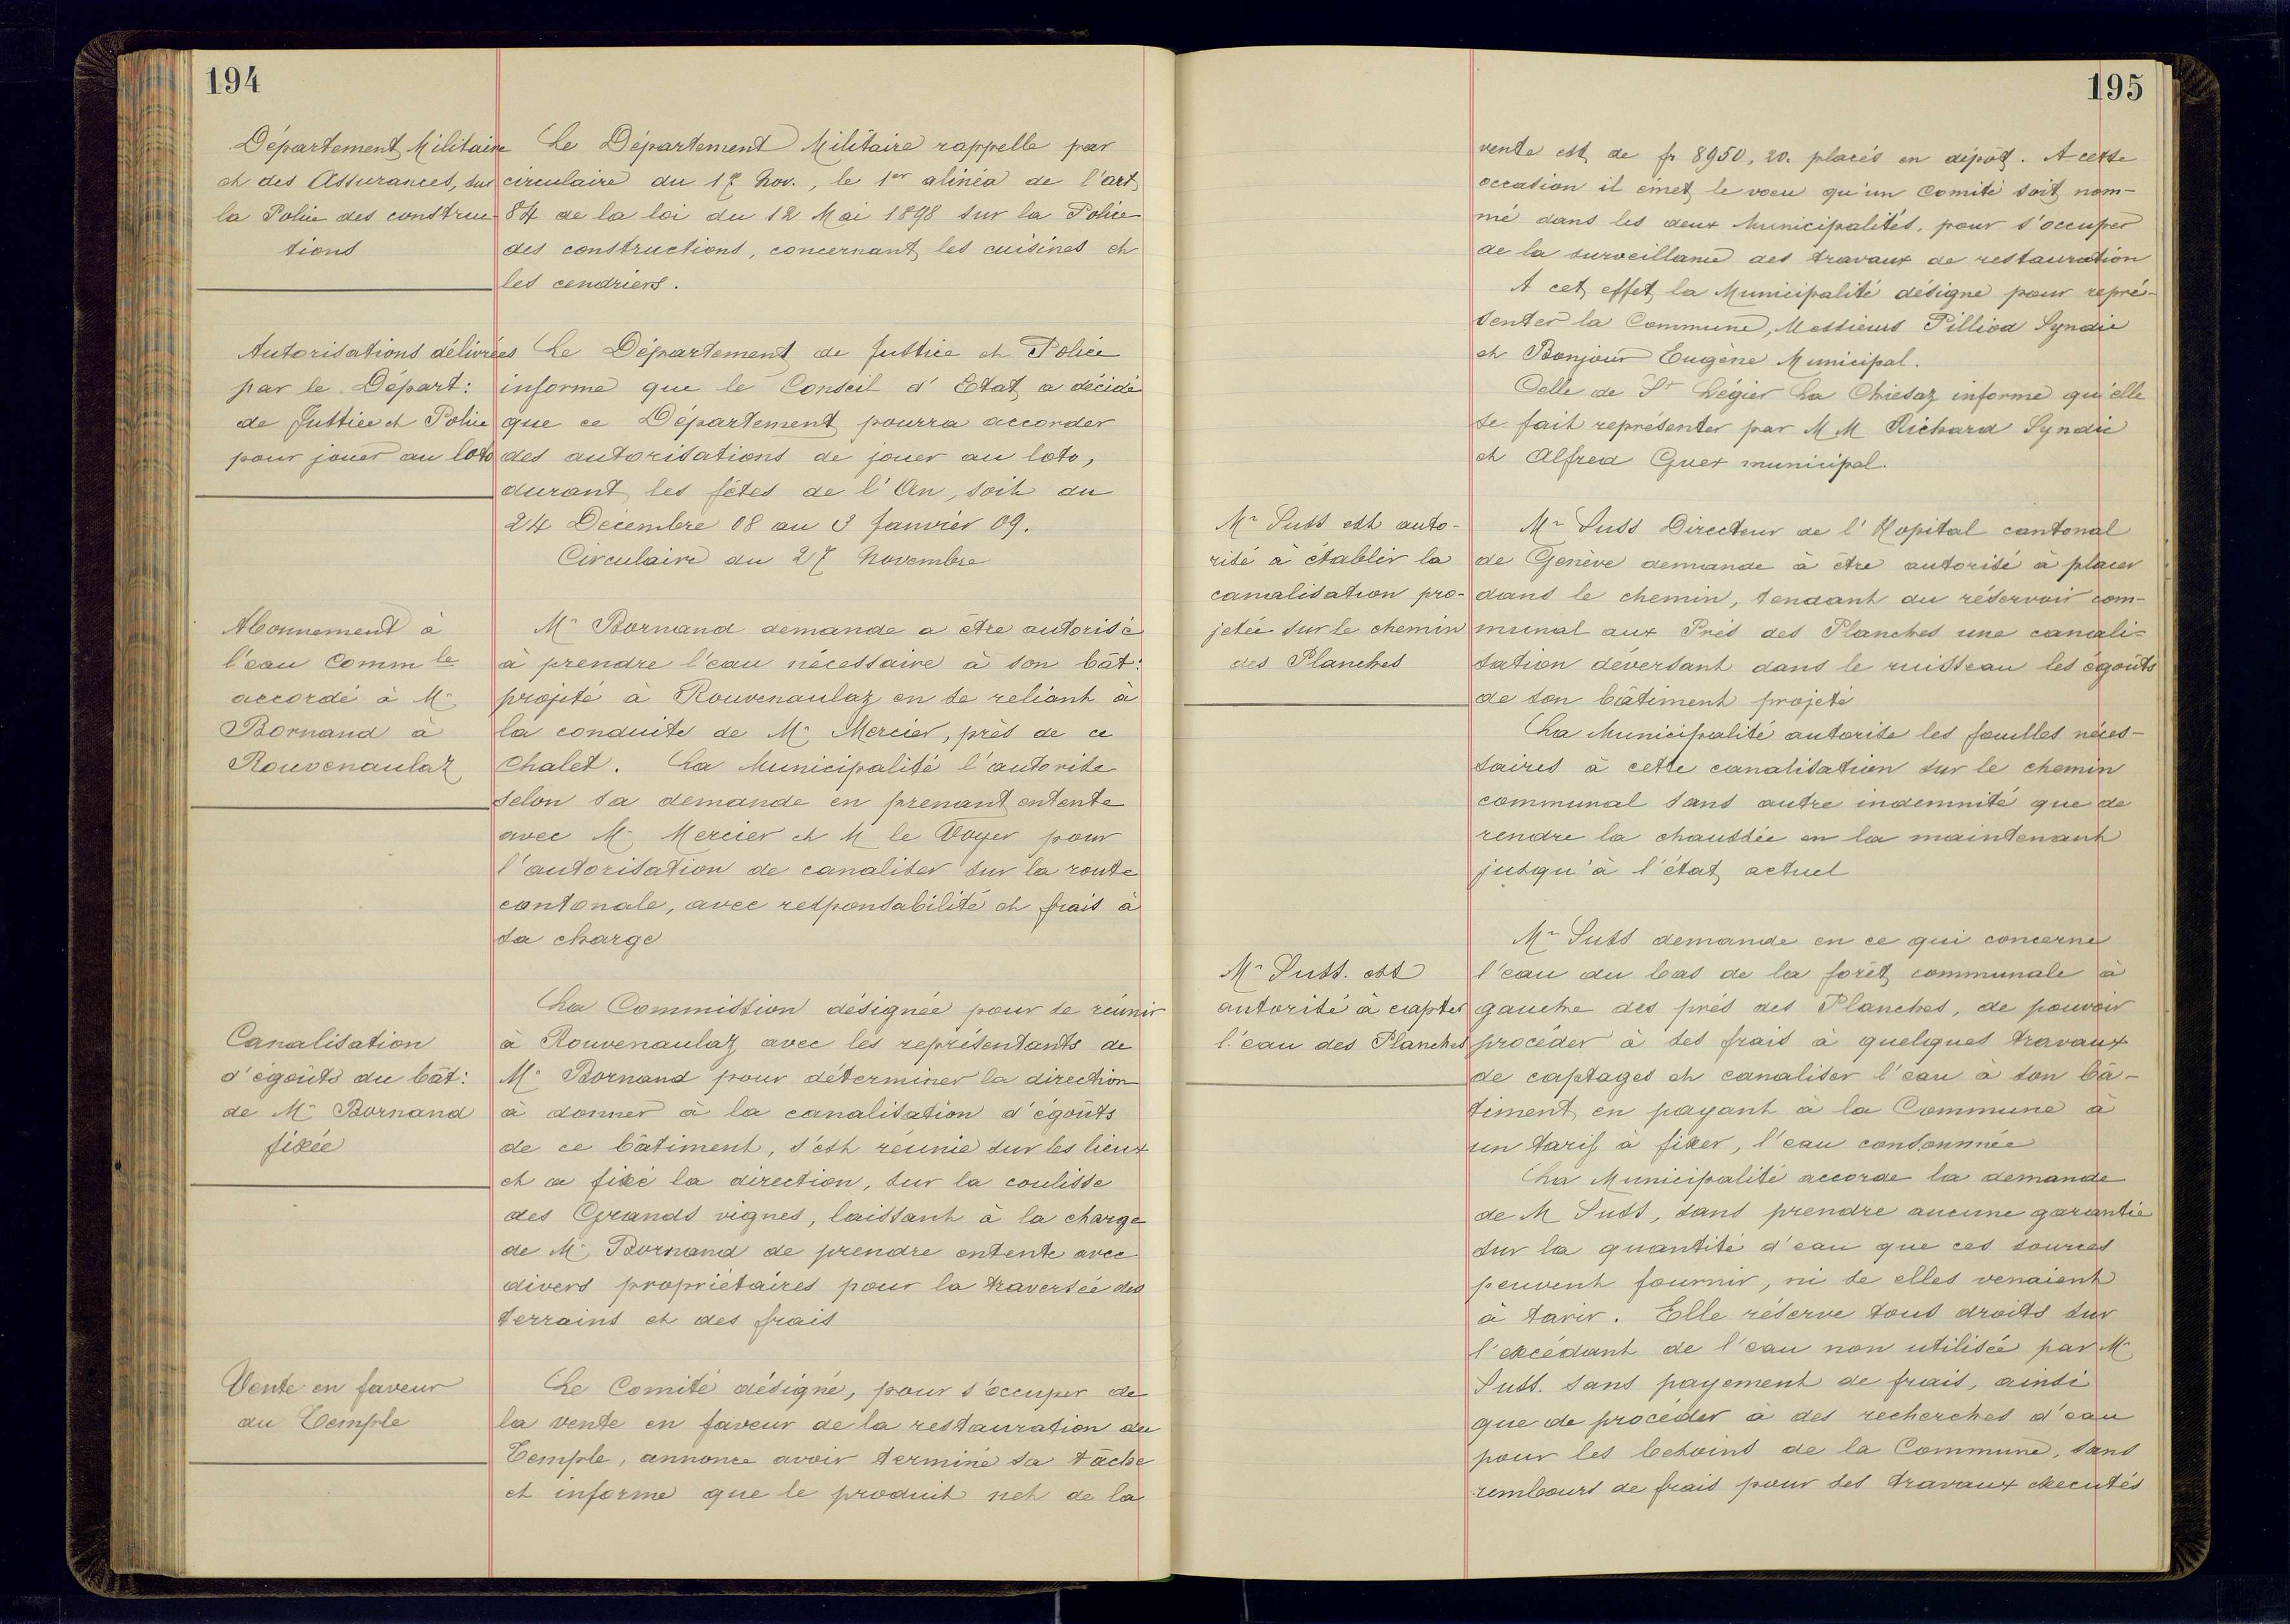 194
Département Militaire
et des Assurances, sur
la Police des construc-
tions
Le Département Militaire rappelle par
circulaire du 17 Nov., le 1er alinéa de l'art
84 de la loi du 12 Mai 1898 sur la Police
des constructions, concernant les cuisines et
les cendriers.
Autorisations délivrées
par le Départ:
de Justice et Police
pour jouer au loto
Le Département de Justice et Police
informe que le Conseil d'Etat a décidé
que ce Département pourra accorder
des autorisations de jouer au loto,
durant les fêtes de l'An, soit du
24 Décembre 08 au 3 Janvier 09.
Circulaire du 27 Novembre
Abonnement à
l'eau Commle
accordé à Mr
Bornand à
Rouvenaulaz
Mr Bornand demande a être autorisé
à prendre l'eau nécessaire à son bât:
projeté à Rouvenaulaz en se reliant à
la conduite de Mr Mercier, près de ce
Chalet. La Municipalité l'autorise
selon sa demande en prenant entente
avec Mr Mercier et M le Voyer pour
l'autorisation de canaliser sur la route
cantonale, avec responsabilité et frais à
sa charge
Canalisation
d'égoûts du bât:
de Mr Bornand
fixée
La Commission désignée pour se réunir
à Rouvenaulaz avec les représentants de
Mr Bornand pour déterminer la direction
à donner à la canalisation d'égoûts
de ce bâtiment, s'est réunie sur les lieux
et a fixé la direction, sur la coulisse
des Grands vignes, laissant à la charge
de Mr Bornand de prendre entente avec
divers propriétaires pour la traversée des
terrains et des frais
Vente en faveur
du Temple
Le Comité désigné, pour s'occuper de
la vente en faveur de la restauration du
Temple, annonce avoir terminé sa tâche
et informe que le produit net de la
195
vente est de fr 8950,20. placés en dépôt. A cette
occasion il émet le voeu qu'un Comité soit nom-
mé dans les deux Municipalités, pour s'occuper
de la surveillance des travaux de restauration
A cet effet la Municipalité désigne pour repré-
senter la Commune, Messieurs Pilliod Syndic
et Bonjour Eugène Municipal.
Celle de St Légier La Chiesaz informe qu'elle
se fait représenter par MM Richard Syndic
et Alfred Guex municipal.
Mr Suss est auto-
risé à établir la
canalisation pro-
jetée sur le chemin
des Planches
Mr Suss Directeur de l'Hopital cantonal
de Genève demande à être autorisé à placer
dans le chemin, tendant du réservoir com-
munal aux Prés des Planches une canali-
sation déversant dans le ruisseau les égoûts
de son bâtiment projeté
La Municipalité autorise les fouilles néces-
saires à cette canalisation sur le chemin
communal sans autre indemnité que de
rendre la chaussée en la maintenant
jusqu'à l'état actuel
Mr Suss. est
autorisé à capter
l'eau des Planches
Mr Suss demande en ce qui concerne
l'eau du bas de la forêt communale à
gauche des prés des Planches, de pouvoir
procéder à ses frais à quelques travaux
de captages et canaliser l'eau à son bâ-
timent en payant à la Commune à
un tarif à fixer, l'eau consommée
La Municipalité accorde la demande
de M Suss, sans prendre aucune garantie
sur la quantité d'eau que ces sources
peuvent fournir, ni se elles venaient
à tarir. Elle réserve tous droits sur
l'excédant de l'eau non utilisée par Mr
Suss. sans payement de frais, ainsi
que de procéder à des recherches d'eau
pour les besoins de la Commune, sans
rembours de frais pour ses travaux executés